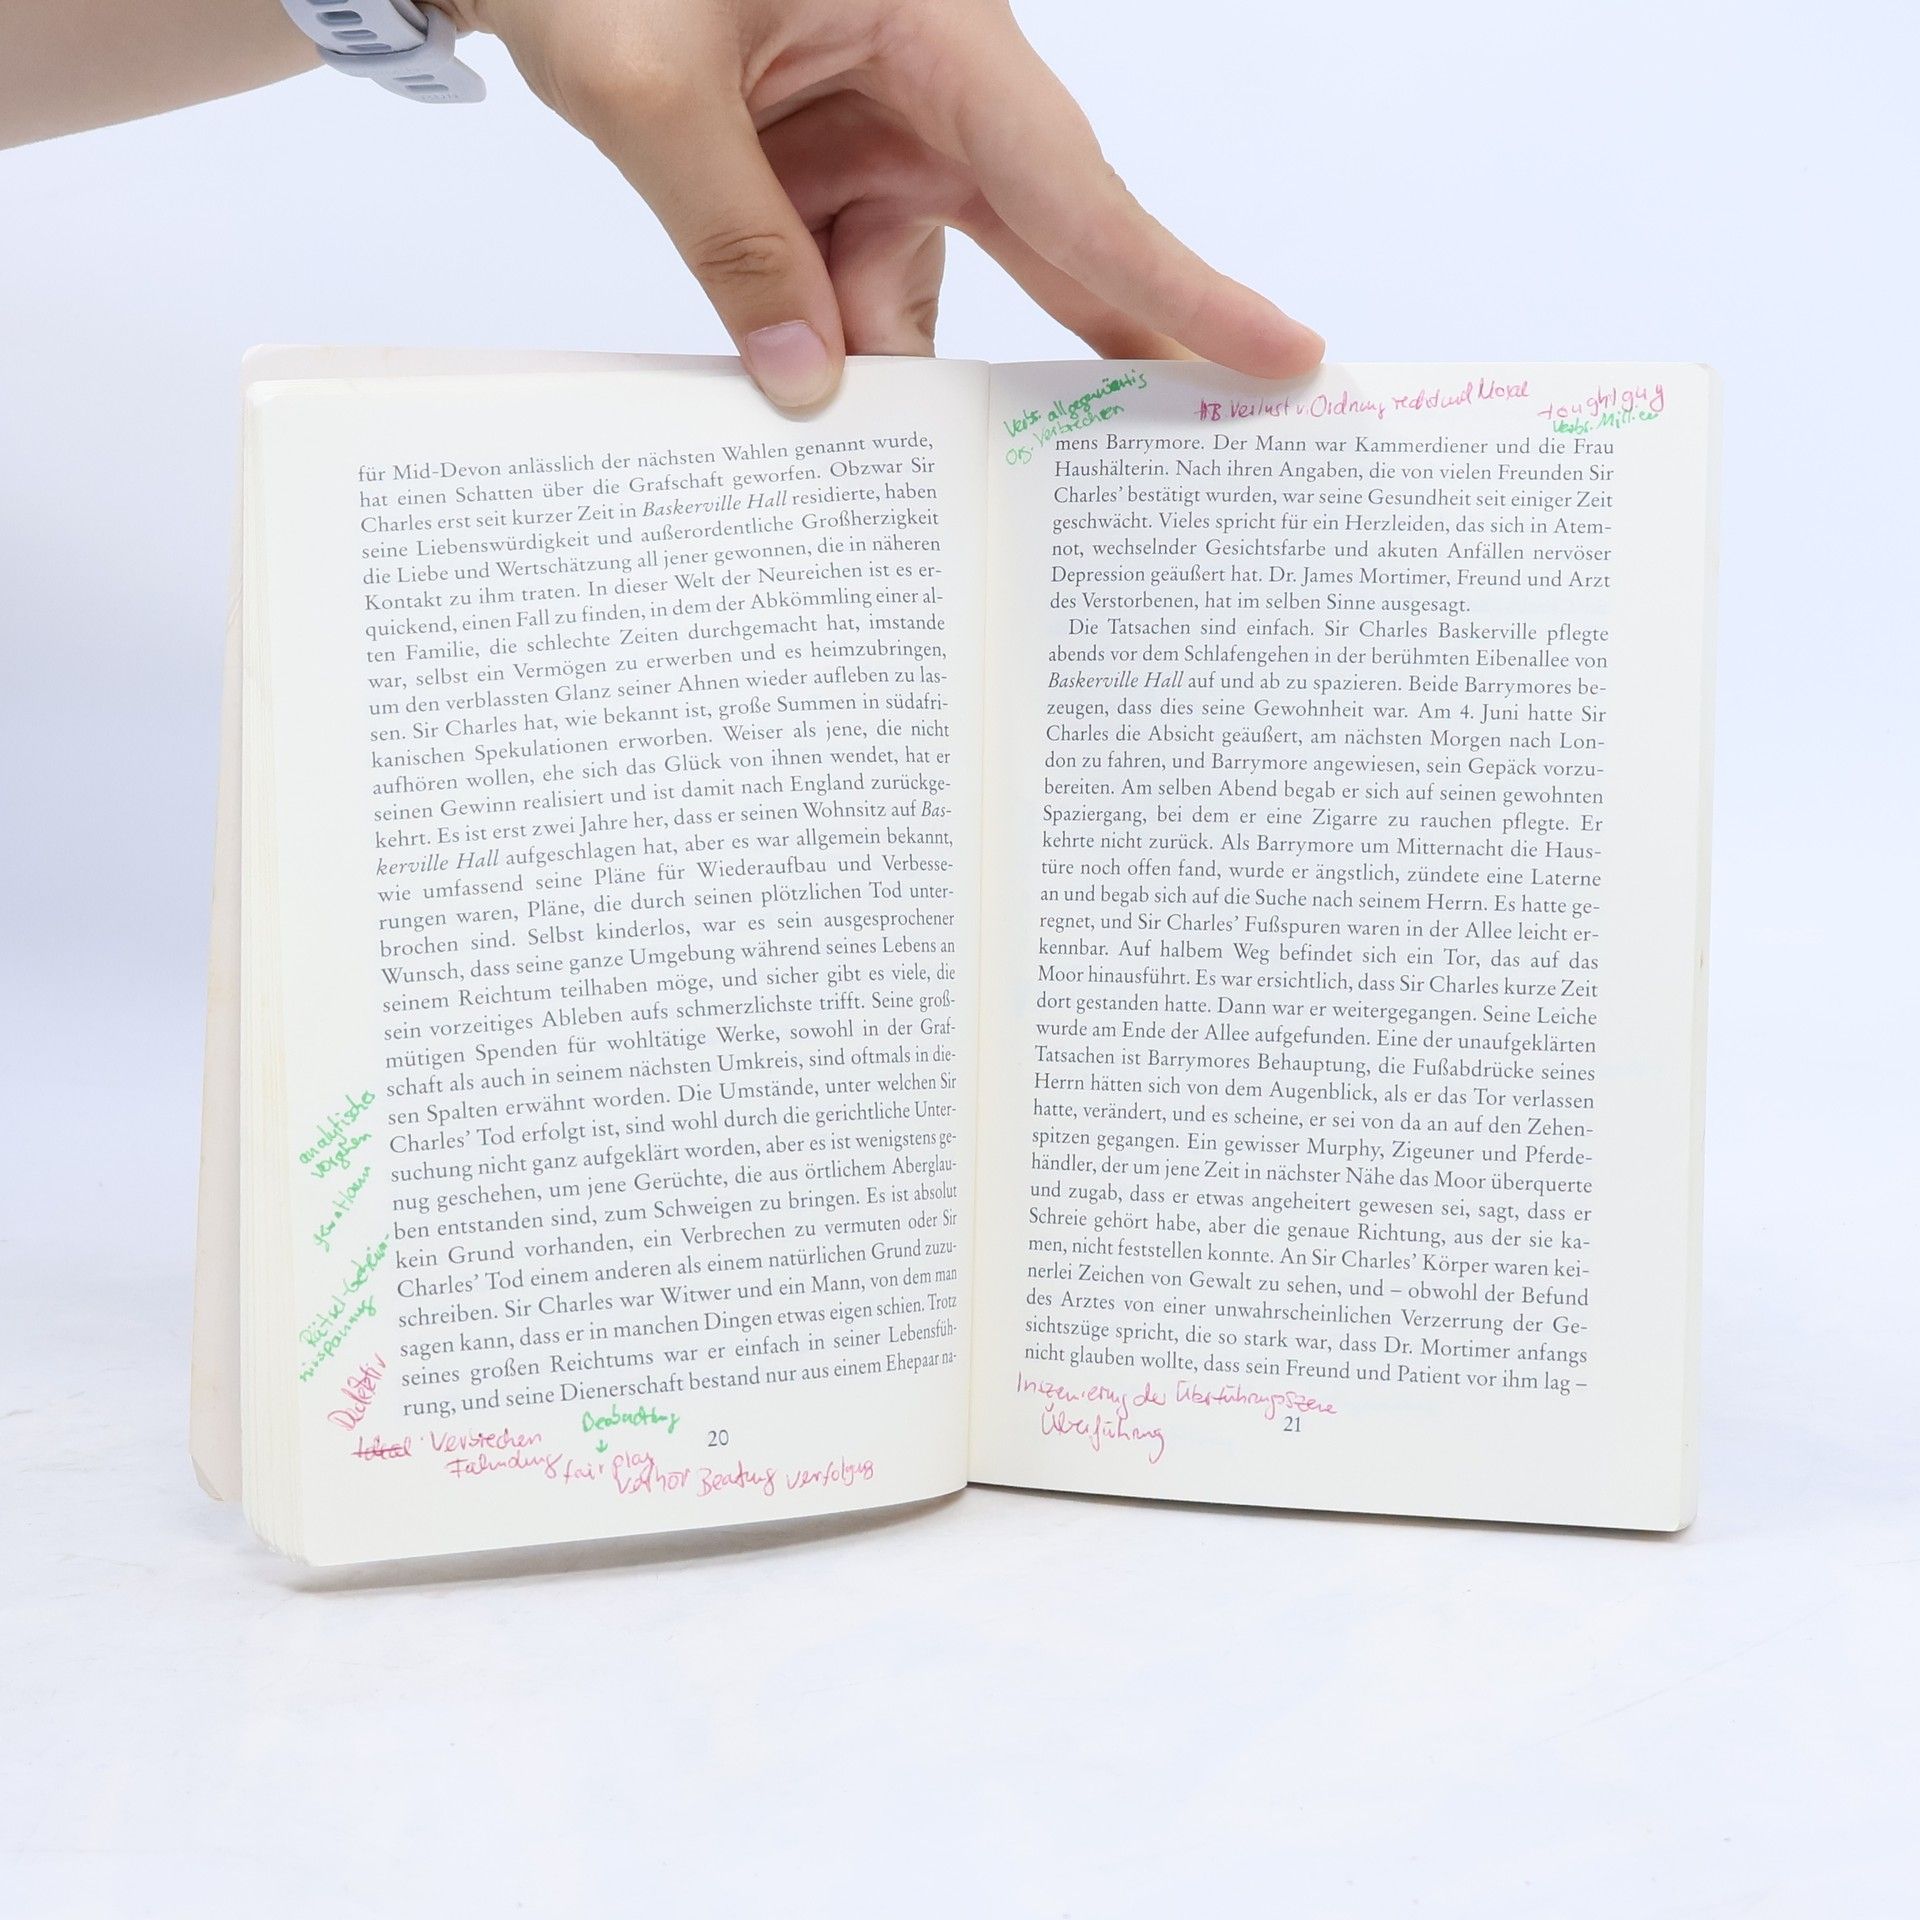 für Mid-Devon anlässlich der nächsten Wahlen genannt wurde,
hat einen Schatten über die Grafschaft geworfen. Obzwar Sir
Charles erst seit kurzer Zeit in Baskerville Hall residierte, haben
seine Liebenswürdigkeit und außerordentliche Großherzigkeit
die Liebe und Wertschätzung all jener gewonnen, die in näheren
Kontakt zu ihm traten. In dieser Welt der Neureichen ist es er-
quickend, einen Fall zu finden, in dem der Abkömmling einer al-
ten Familie, die schlechte Zeiten durchgemacht hat, imstande
war, selbst ein Vermögen zu erwerben und es heimzubringen,
um den verblassten Glanz seiner Ahnen wieder aufleben zu las-
sen. Sir Charles hat, wie bekannt ist, große Summen in südafri-
kanischen Spekulationen erworben. Weiser als jene, die nicht
aufhören wollen, ehe sich das Glück von ihnen wendet, hat er
seinen Gewinn realisiert und ist damit nach England zurückge-
kehrt. Es ist erst zwei Jahre her, dass er seinen Wohnsitz auf Bas-
kerville Hall aufgeschlagen hat, aber es war allgemein bekannt,
wie umfassend seine Pläne für Wiederaufbau und Verbesse-
rungen waren, Pläne, die durch seinen plötzlichen Tod unter-
brochen sind. Selbst kinderlos, war es sein ausgesprochener
Wunsch, dass seine ganze Umgebung während seines Lebens an
seinem Reichtum teilhaben möge, und sicher gibt es viele, die
sein vorzeitiges Ableben aufs schmerzlichste trifft. Seine groß-
mütigen Spenden für wohltätige Werke, sowohl in der Graf-
schaft als auch in seinem nächsten Umkreis, sind oftmals in die-
sen Spalten erwähnt worden. Die Umstände, unter welchen Sir
Charles' Tod erfolgt ist, sind wohl durch die gerichtliche Unter-
suchung nicht ganz aufgeklärt worden, aber es ist wenigstens ge-
nug geschehen, um jene Gerüchte, die aus örtlichem Aberglau-
ben entstanden sind, zum Schweigen zu bringen. Es ist absolut
kein Grund vorhanden, ein Verbrechen zu vermuten oder Sir
Charles' Tod einem anderen als einem natürlichen Grund zuzu-
schreiben. Sir Charles war Witwer und ein Mann, von dem man
sagen kann, dass er in manchen Dingen etwas eigen schien. Trotz
seines großen Reichtums war er einfach in seiner Lebensfüh-
rung, und seine Dienerschaft bestand nur aus einem Ehepaar na-
analytisches
vorgehen
Rätsel-Geheim-
nisspannung
Detektiv
Beobachtung
↓
Verbrechen
Fahndung fair play
Verhör Beatung verfolgung
20
Verbr. allgegenwärtig
Org. Verbrechen
AB Verlust v. Ordnung recht und Moral
toughguy
Verbr. Millieu
mens Barrymore. Der Mann war Kammerdiener und die Frau
Haushälterin. Nach ihren Angaben, die von vielen Freunden Sir
Charles' bestätigt wurden, war seine Gesundheit seit einiger Zeit
geschwächt. Vieles spricht für ein Herzleiden, das sich in Atem-
not, wechselnder Gesichtsfarbe und akuten Anfällen nervöser
Depression geäußert hat. Dr. James Mortimer, Freund und Arzt
des Verstorbenen, hat im selben Sinne ausgesagt.
Die Tatsachen sind einfach. Sir Charles Baskerville pflegte
abends vor dem Schlafengehen in der berühmten Eibenallee von
Baskerville Hall auf und ab zu spazieren. Beide Barrymores be-
zeugen, dass dies seine Gewohnheit war. Am 4. Juni hatte Sir
Charles die Absicht geäußert, am nächsten Morgen nach Lon-
don zu fahren, und Barrymore angewiesen, sein Gepäck vorzu-
bereiten. Am selben Abend begab er sich auf seinen gewohnten
Spaziergang, bei dem er eine Zigarre zu rauchen pflegte. Er
kehrte nicht zurück. Als Barrymore um Mitternacht die Haus-
türe noch offen fand, wurde er ängstlich, zündete eine Laterne
an und begab sich auf die Suche nach seinem Herrn. Es hatte ge-
regnet, und Sir Charles' Fußspuren waren in der Allee leicht er-
kennbar. Auf halbem Weg befindet sich ein Tor, das auf das
Moor hinausführt. Es war ersichtlich, dass Sir Charles kurze Zeit
dort gestanden hatte. Dann war er weitergegangen. Seine Leiche
wurde am Ende der Allee aufgefunden. Eine der unaufgeklärten
Tatsachen ist Barrymores Behauptung, die Fußabdrücke seines
Herrn hätten sich von dem Augenblick, als er das Tor verlassen
hatte, verändert, und es scheine, er sei von da an auf den Zehen-
spitzen gegangen. Ein gewisser Murphy, Zigeuner und Pferde-
händler, der um jene Zeit in nächster Nähe das Moor überquerte
und zugab, dass er etwas angeheitert gewesen sei, sagt, dass er
Schreie gehört habe, aber die genaue Richtung, aus der sie ka-
men, nicht feststellen konnte. An Sir Charles' Körper waren kei-
nerlei Zeichen von Gewalt zu sehen, und – obwohl der Befund
des Arztes von einer unwahrscheinlichen Verzerrung der Ge-
sichtszüge spricht, die so stark war, dass Dr. Mortimer anfangs
nicht glauben wollte, dass sein Freund und Patient vor ihm lag –
Inszenierung der Überführungsszene
Überführung
21